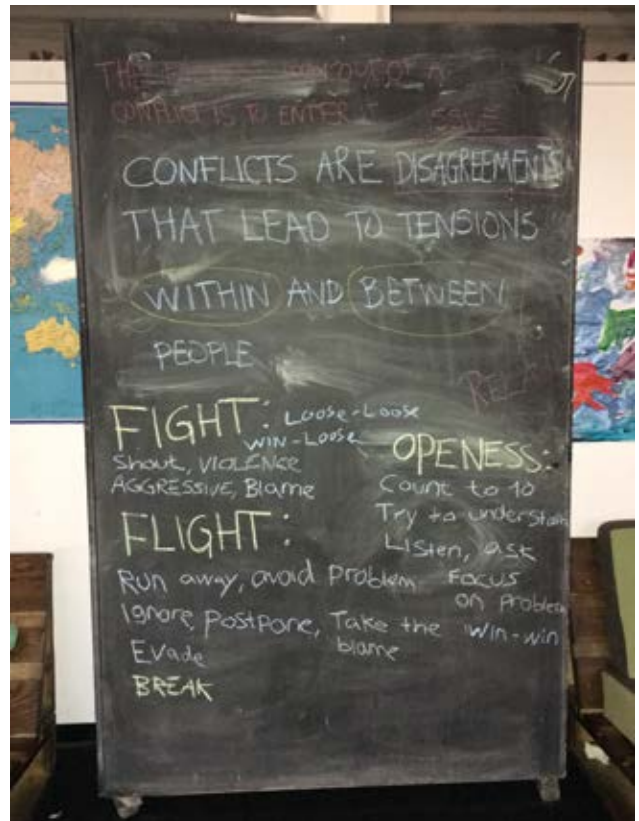 CONFLICT IS TO ENTER IT
SOLVE
CONFLICTS ARE DISAGREEMENTS
THAT LEAD TO TENSIONS
WITHIN AND BETWEEN
PEOPLE
FIGHT: LOOSE-LOOSE
WIN-LOOSE
Shout, VIOLENCE
AGGRESSIVE, Blame
FLIGHT:
Run away, avoid Problem
Ignore, Postpone, Take the blame
Evade
BREAK
OPENESS:
Count to 10
Try to understan
Listen, ask
FOCUS
on Problem
Win-win